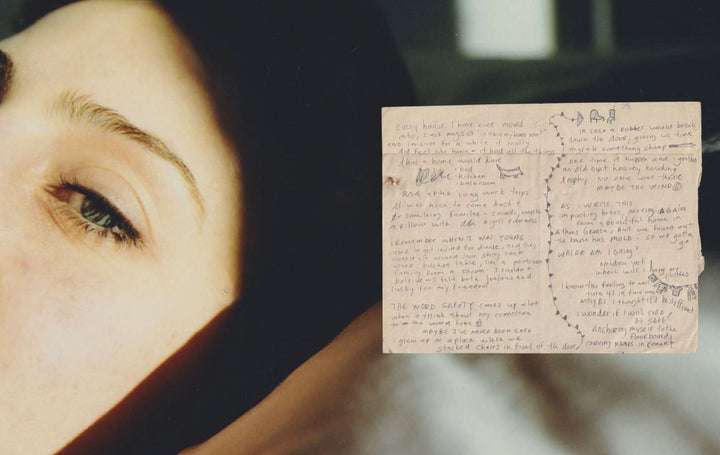 Every house I have ever moved
into, I ask myself "is this my home now"
and in sure for a while it really
did feel like home - it had all the things
that a home would have
• bed
• kitchen
• bathroom
And after long work trips
it was nice to come back to
something familiar
a pillow with
I remember WHEN I WAS YOUNG
used to get invited for dinner, and they
all around some shiny
wood kitchen table, like a
family from a I couldn't
believe - I felt both jealous and
lucky for my freedom
THE WORD SAFETY comes up a lot
when I think about my connection
to the word home
MAYBE I've never been safe
I grew up in a place where we
stacked chairs in front of the door
in case a robber would break
down the door, giving us time
to grab something sharp
one time it happened and I grabbed
an old but heavy bowling
trophy no one was there
MAYBE THE WIND
AS I WRITE THIS
boxes, moving AGAIN
from a beautiful home in
Athens Greece, but we found out
the house has MOLD - so we gotta
go
WHERE AM I GOING?
no idea yet
where will I hang my
clothes
I know the feeling too well
turn 41 in two weeks
MAYBE I thought it'd be different
I wonder if I will ever
be SAFE
Anchoring myself to the
floorboards
carving names in cement